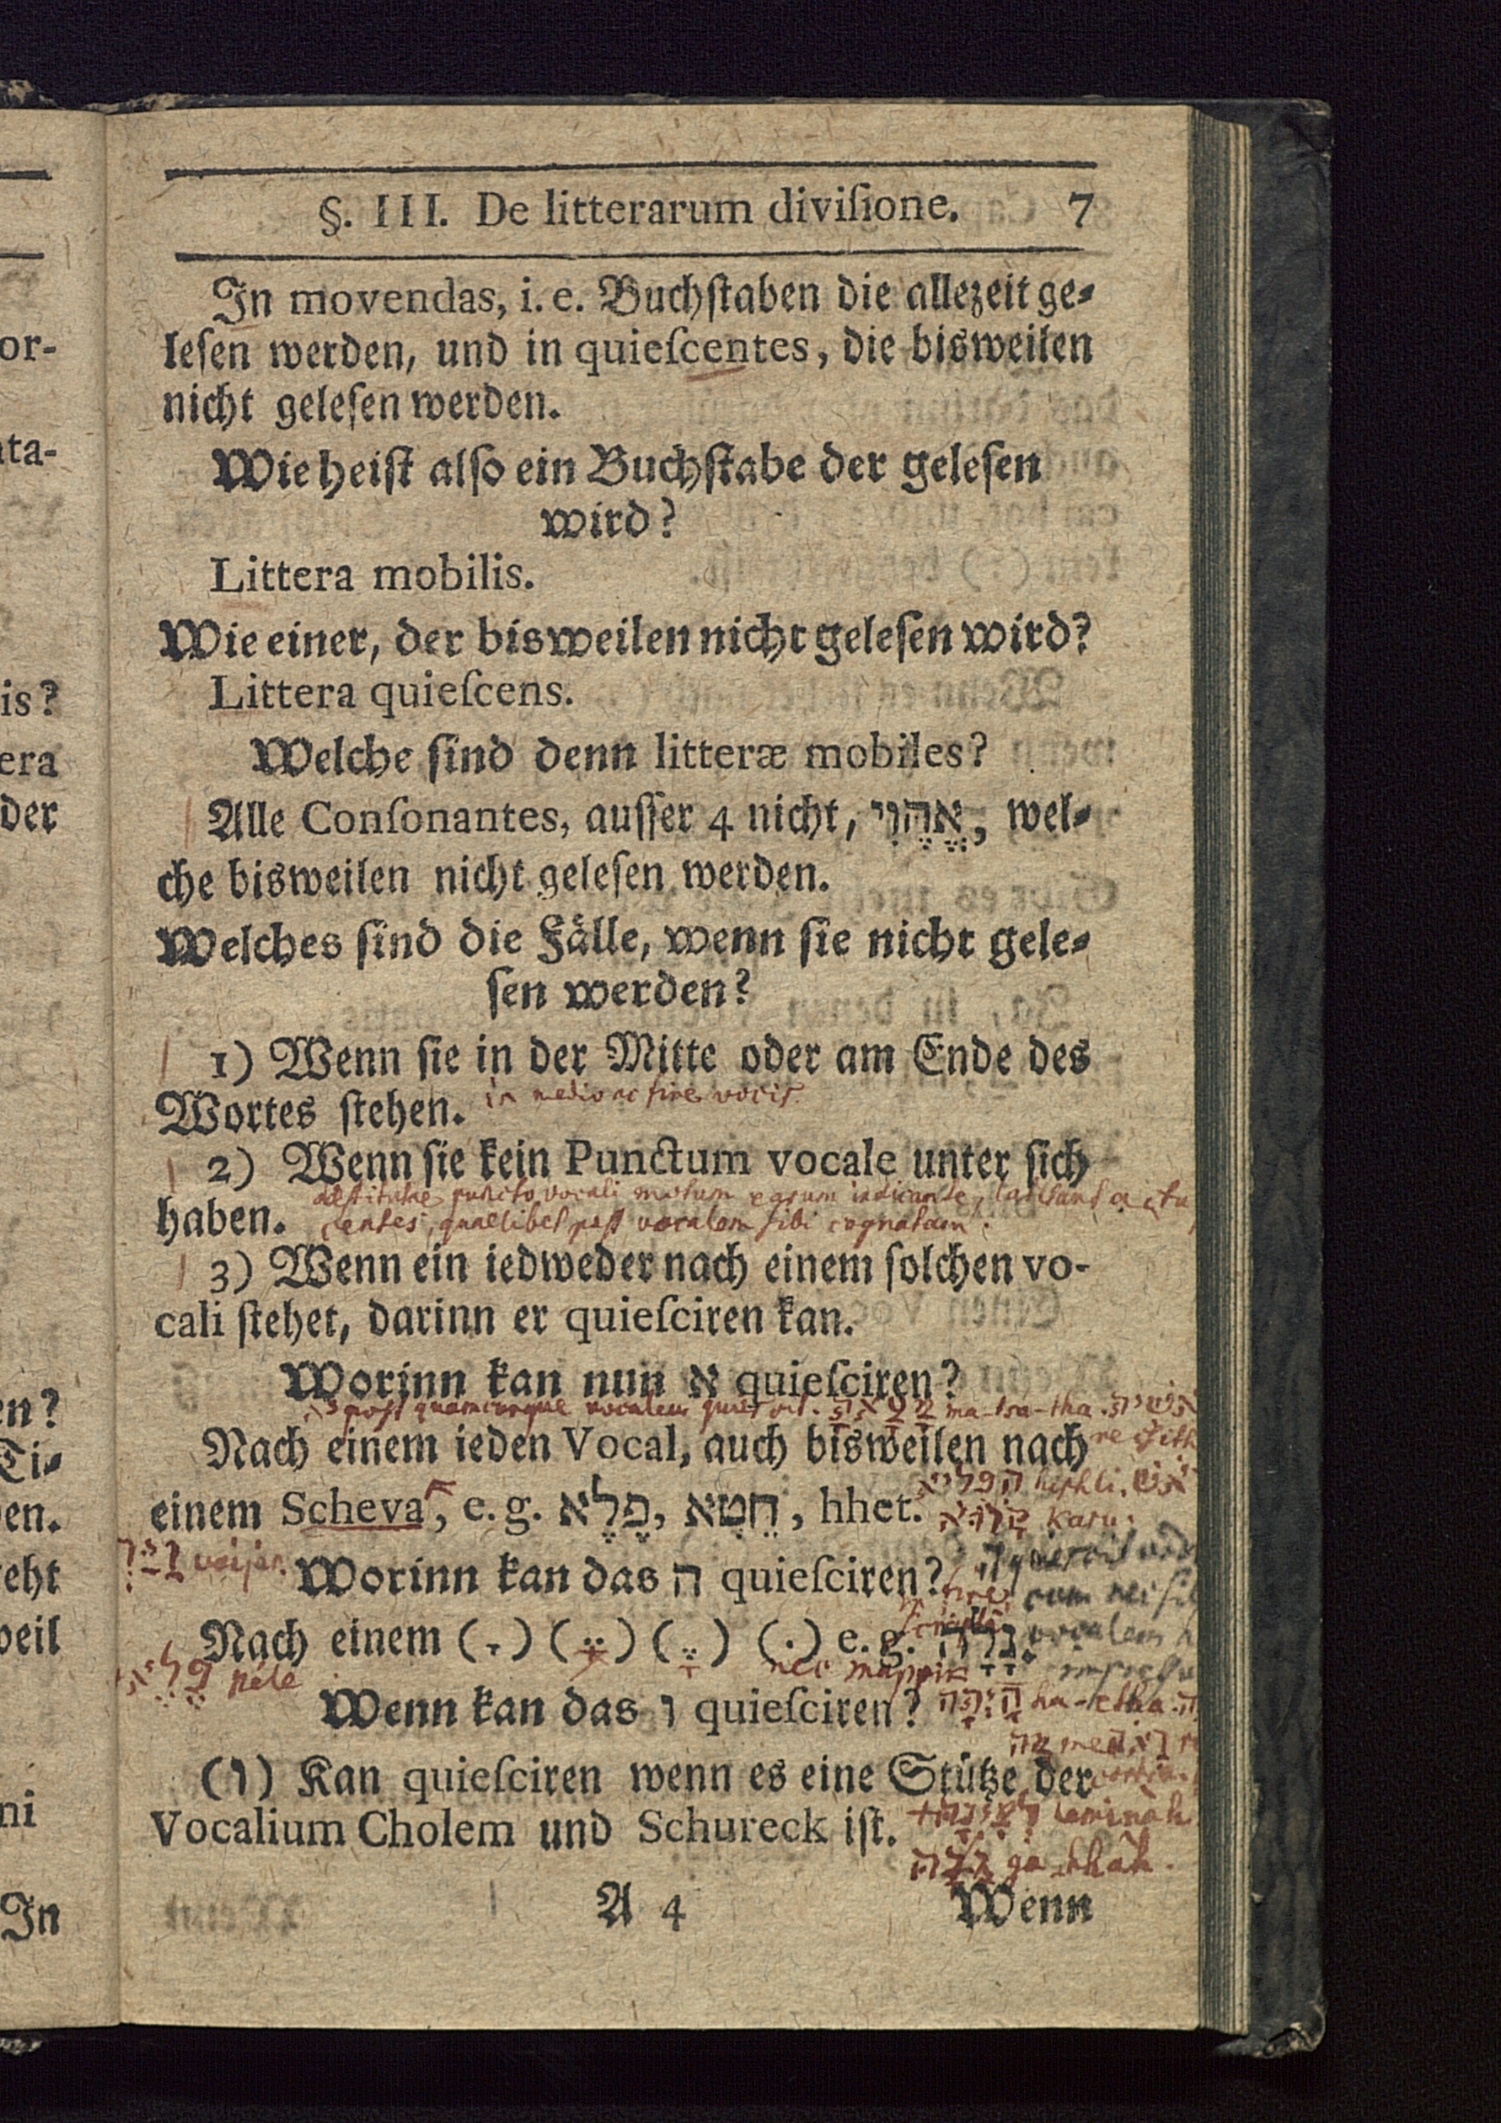 §. III. De litterarum diviſione. 7
In movendas, i. e. Buchſtaben die allezeit ge-
leſen werden, und in quieſcentes, die bisweilen
nicht geleſen werden.
Wie heiſt alſo ein Buchſtabe der geleſen
wird?
Littera mobilis.
Wie einer, der bisweilen nicht geleſen wird?
Littera quieſcens.
Welche ſind denn litteræ mobiles?
Alle Conſonantes, auſſer 4 nicht, אֱהֶוִי, wel-
che bisweilen nicht geleſen werden.
Welches ſind die Fälle, wenn ſie nicht gele-
ſen werden?
1) Wenn ſie in der Mitte oder am Ende des
Wortes ſtehen. in medio ac fine vocis
2) Wenn ſie kein Punctum vocale unter ſich
destitutae puncto vocali motum earum indicante,
haben. quaelibet post vocalem sibi cognatam.
3) Wenn ein iedweder nach einem ſolchen vo-
cali ſtehet, darinn er quieſciren kan.
Worinn kan nun א quieſciren?
post quamcunque vocalem quiescit. ma-tsa-tha.
Nach einem ieden Vocal, auch bisweilen nach
einem Scheva, e. g. פֶּלֶא, חֵטְא, hhet.
Worinn kan das ה quieſciren?
Nach einem (ָ) (ֵ) (ֶ) (ֹ) e. g.
pele nec mappik
Wenn kan das ו quieſciren?
(ו) Kan quieſciren wenn es eine Stütze der
Vocalium Cholem und Schureck iſt.
A 4 Wenn
or-
ata-
is?
era
der
en?
Ti-
en.
eht
weil
ni
In